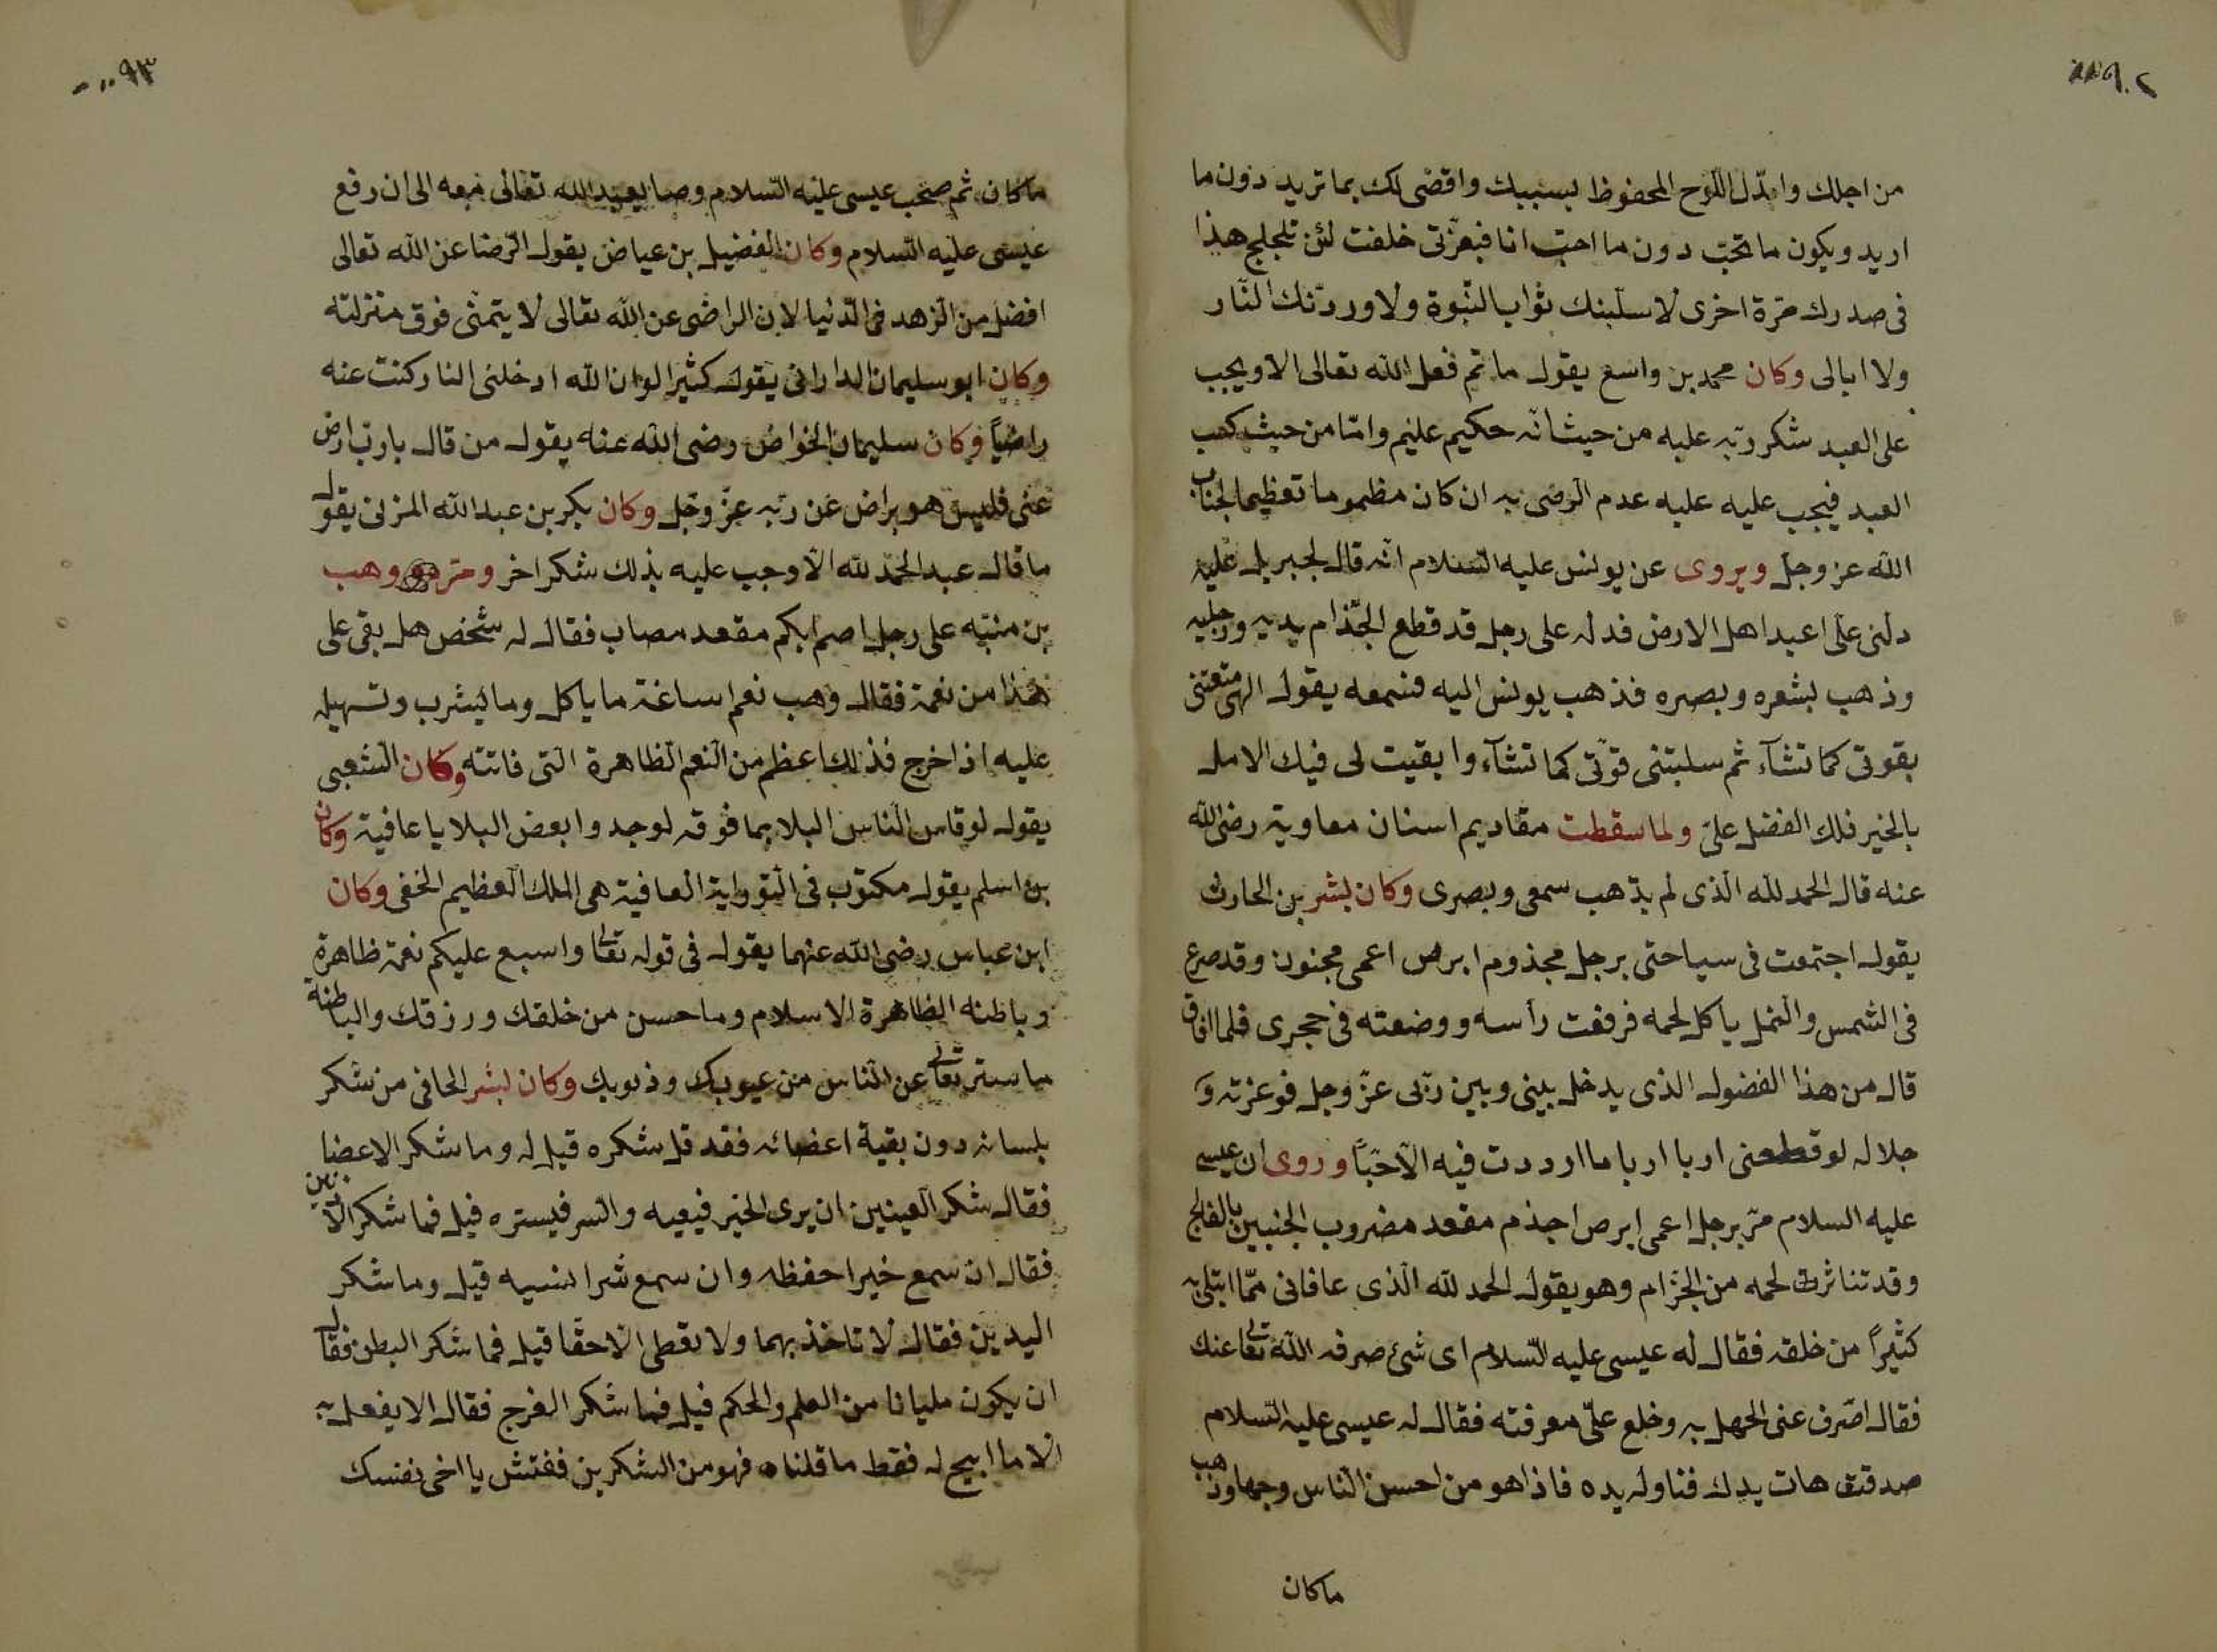 ٩٠٢
من اجلك وابدّل اللوح المحفوظ بسببك واقضى لك بما تريد دون ما
اريد ويكون ما تحبّ دون ما احبّ انا فبعزّتى حلفت لئن تلجلج هذا
فى صدرك مرّة اخرى لاسلبنك ثواب النّبوة ولاوردّنك النّار
ولا ابالى وكان محمد بن واسع يقول ما تم فعل الله تعالى الا ويجب
على العبد شكر ربّه عليه من حيث انّه حكيم عليم وامّا من حيث كسب
العبد فيجب عليه عليه عدم الرضى به ان كان مظموما تعظيما لجناب
الله عز وجل ويروى عن يونس عليه السّلام انّه قال لجبريل عليه
دلنى على اعبد اهل الارض فدله على رجل قد قطع الجذام يديه ورجليه
وذهب بشعره وبصره فذهب يونس اليه فسمعه يقول الهى متعتنى
بقوتى كما تشآء ثم سلبتنى قوّتى كما تشآء وابقيت لى فيك الامل
بالخير فلك الفضل علىّ ولما سقطت مقاديم اسنان معاوية رضى الله
عنه قال الحمد لله الّذى لم يذهب سمعى وبصرى وكان بشر بن الحارث
يقول اجتمعت فى سياحتى برجل مجذوم ابرص اعمى مجنون وقد صرع
فى الشمس والنمل ياكل لحمه فرفعت رأسه ووضعته فى حجرى فلما افاق
قال من هذا الفضول الذى يدخل بينى وبين ربّى عزّ وجل فوعزته و
جلاله لو قطعنى اربا اربا ما ازددت فيه الّا حبّاً وروى ان عيسى
عليه السلام مرّ برجل اعمى ابرص اجذم مقعد مضروب الجنبين بالفالج
وقد تناثرت لحمه من الجزام وهو يقول الحمد لله الّذى عافانى ممّا ابتلى به
كثيراً من خلقه فقال له عيسى عليه السّلام اى شئ صرفه الله تعالى عنك
فقال اصّرف عنى الجهل به وخلع علىّ معرفته فقال له عيسى عليه السّلام
صدقت هات يدك فناوله يده فاذا هو من احسن الناس وجها وذهب
ماكان
٩٣
ماكان ثم صحب عيسى عليه السّلام وصا يعبد الله تعالى معه الى ان رفع
عيسى عليه السّلام وكان الفضيل بن عياض يقول الرّضا عن الله تعالى
افضل من الزهد فى الدّنيا لان الراضى عن الله تعالى لا يتمنّى فوق منزلته
وكان ابو سليمان الدارانى يقول كثيرا لو ان الله ادخلنى النار كنت عنه
راضياً وكان سليمان الخواص رضى الله عنه يقول من قال يا ربّ ارض
عنى فليس هو براض عن ربّه عزّ وجل وكان بكر بن عبد الله المزنى يقول
ما قال عبد الحمد لله الّا وجب عليه بذلك شكر اخر ومرّ وهب
بن منبّه على رجل اصم ابكم مقعد مصاب فقال له شخص هل بقى على
هذا من نعمة فقال وهب نعم اساغة ما ياكل وما يشرب وتسهيله
عليه اذا خرج فذلك اعظم من النعم الظاهرة التى فاتته وكان الشعبى
يقول لو قاس الناس البلا بما فوقه لوجدوا بعض البلايا عافية وكان
بن اسلم يقول مكتوب فى التوراية العافية هى الملك العظيم الخفى وكان
ابن عباس رضى الله عنهما يقول فى قوله تعالى واسبع عليكم نعمة ظاهرة
وباطنه الظاهرة الاسلام وما حسن من خلقك ورزقك والباطنة
ما ستر تعالى عن الناس من عيوبك وذنوبك وكان بشر الحافى من شكر
بلسانه دون بقية اعضائه فقد قل شكره قيل له وما شكر الاعضا
فقال شكر العينين ان يرى الخير فيعيه والشر فيستره قيل فما شكر الاذنين
فقال ان سمع خيرا حفظه وان سمع شرا نسيه قيل وما شكر
اليدين فقال لا تاخذ بهما ولا تعطى الا حقّا قيل فما شكر البطن فقال
ان يكون مليانا من العلم والحكم قيل فما شكر الفرج فقال الا يفعل به
الا ما ابيح له فقط ما قلناه فهو من الشكرين ففتش يا اخى نفسك